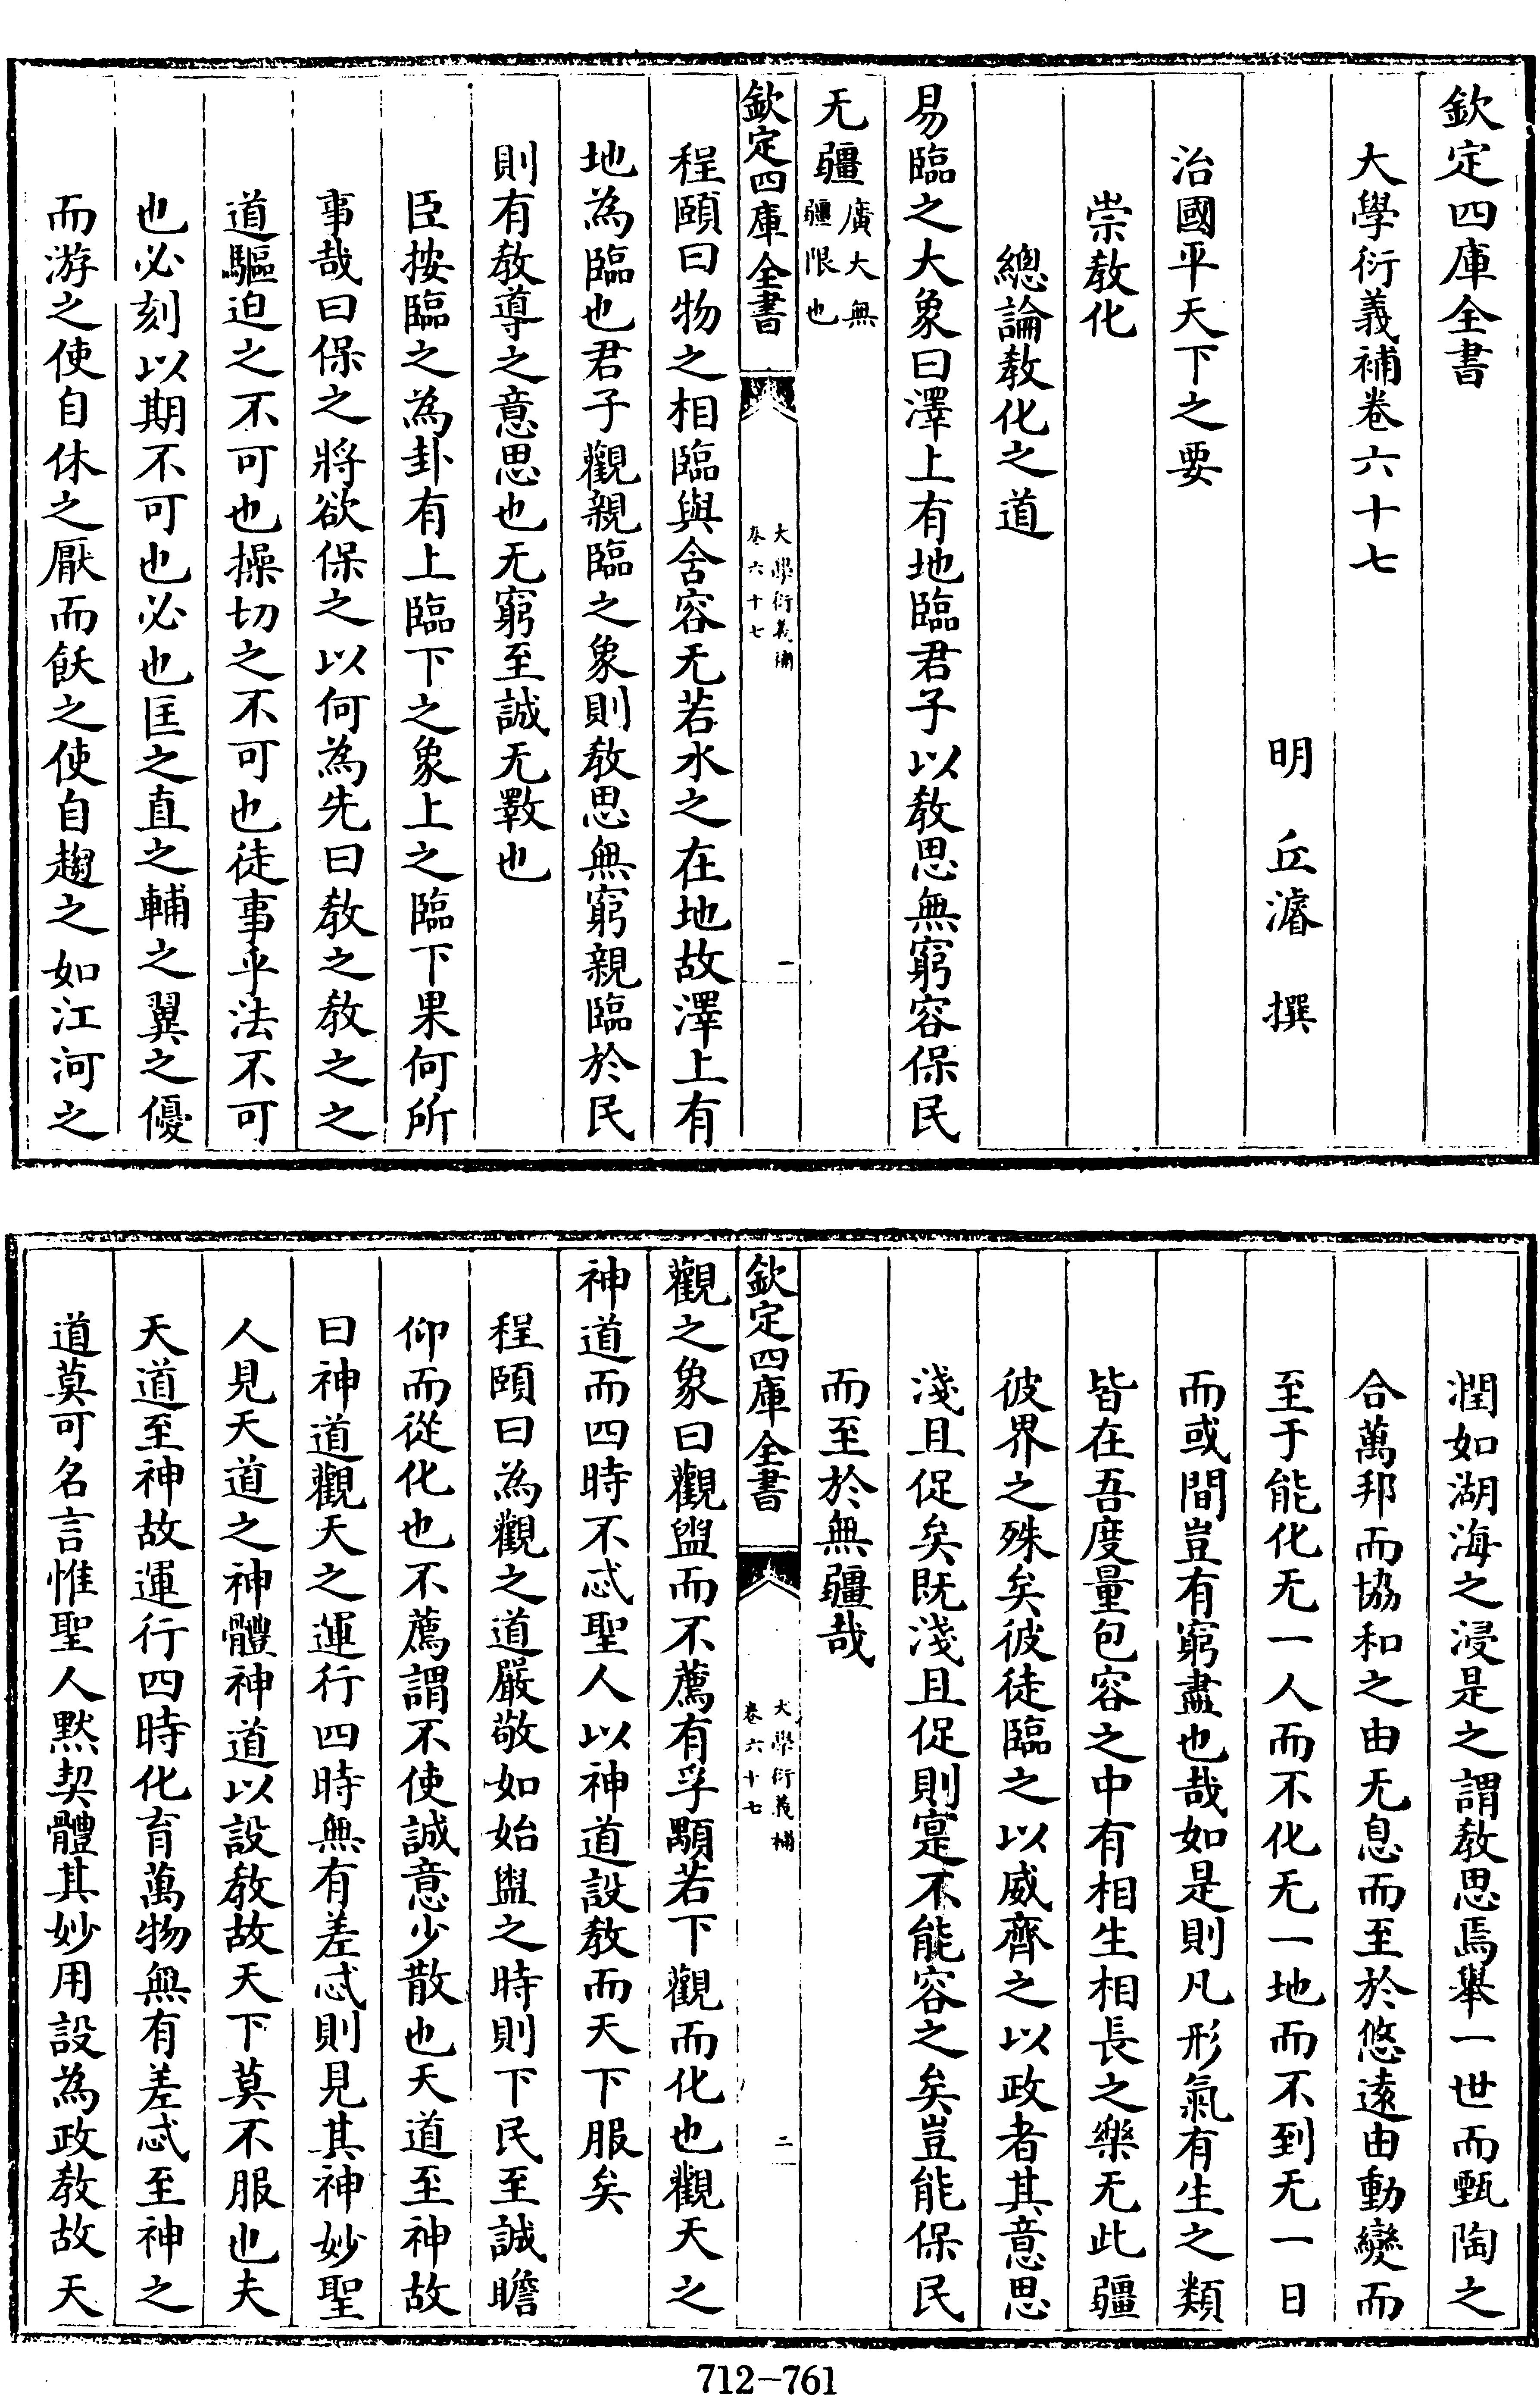 欽定四庫全書
大學衍義補卷六十七
明 丘濬 撰
治國平天下之要
崇教化
總論教化之道
易臨之大象曰澤上有地臨君子以教思無窮容保民
无疆廣大無疆限也
欽定四庫全書 大學衍義補 卷六十七 一
程頤曰物之相臨與含容无若水之在地故澤上有
地為臨也君子觀親臨之象則教思無窮親臨於民
則有教導之意思也无窮至誠无斁也
臣按臨之為卦有上臨下之象上之臨下果何所
事哉曰保之將欲保之以何為先曰教之教之之
道驅迫之不可也操切之不可也徒事乎法不可
也必刻以期不可也必也匡之直之輔之翼之優
而游之使自休之厭而飫之使自趨之如江河之
潤如湖海之浸是之謂教思焉舉一世而甄陶之
合萬邦而協和之由无息而至於悠遠由動變而
至于能化无一人而不化无一地而不到无一日
而或間豈有窮盡也哉如是則凡形氣有生之類
皆在吾度量包容之中有相生相長之樂无此疆
彼界之殊矣彼徒臨之以威齊之以政者其意思
淺且促矣既淺且促則寔不能容之矣豈能保民
而至於無疆哉
欽定四庫全書 大學衍義補 卷六十七 二
觀之象曰觀盥而不薦有孚顒若下觀而化也觀天之
神道而四時不忒聖人以神道設教而天下服矣
程頤曰為觀之道嚴敬如始盥之時則下民至誠瞻
仰而從化也不薦謂不使誠意少散也天道至神故
曰神道觀天之運行四時無有差忒則見其神妙聖
人見天道之神體神道以設教故天下莫不服也夫
天道至神故運行四時化育萬物無有差忒至神之
道莫可名言惟聖人默契體其妙用設為政教故天
712-761